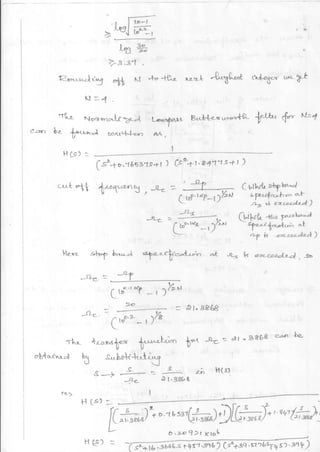 ≥ log √(10-1 / 10^0.2-1)
log 30/20
≥ 3.37.
Rounding off N to the next highest integer we get
N = 4.
The Normalized Lowpass Butterworth filter for N=4
can be found written as,
H(s) = 1 / (s²+0.76537s+1) (s²+1.8477s+1)
cut off frequency, Ωc = Ωp / (10^0.1αp -1)^1/2N (While stopband
specification at
Ωs is exceeded)
Ωc = Ωs / (10^0.1αs -1)^1/2N (While the passband
specification at
Ωp is exceeded)
Here stop band specification at Ωs is exceeded, so
Ωc = Ωp / (10^0.1αp -1)^1/2N
Ωc = 20 / (10^0.2 -1)^1/8 = 21.3868
The transfer function for Ωc = 21.3868 can be
obtained by substituting
s → s/Ωc = s/21.3868 in H(s)
H(s) = 1 / [(s/21.3868)² + 0.76537(s/21.3868)+1] [(s/21.3868)² + 1.8477(s/21.3868)+
H(s) = 0.20921×10⁶ / (s²+16.3686s+457.394) (s²+39.5176s+457.394)